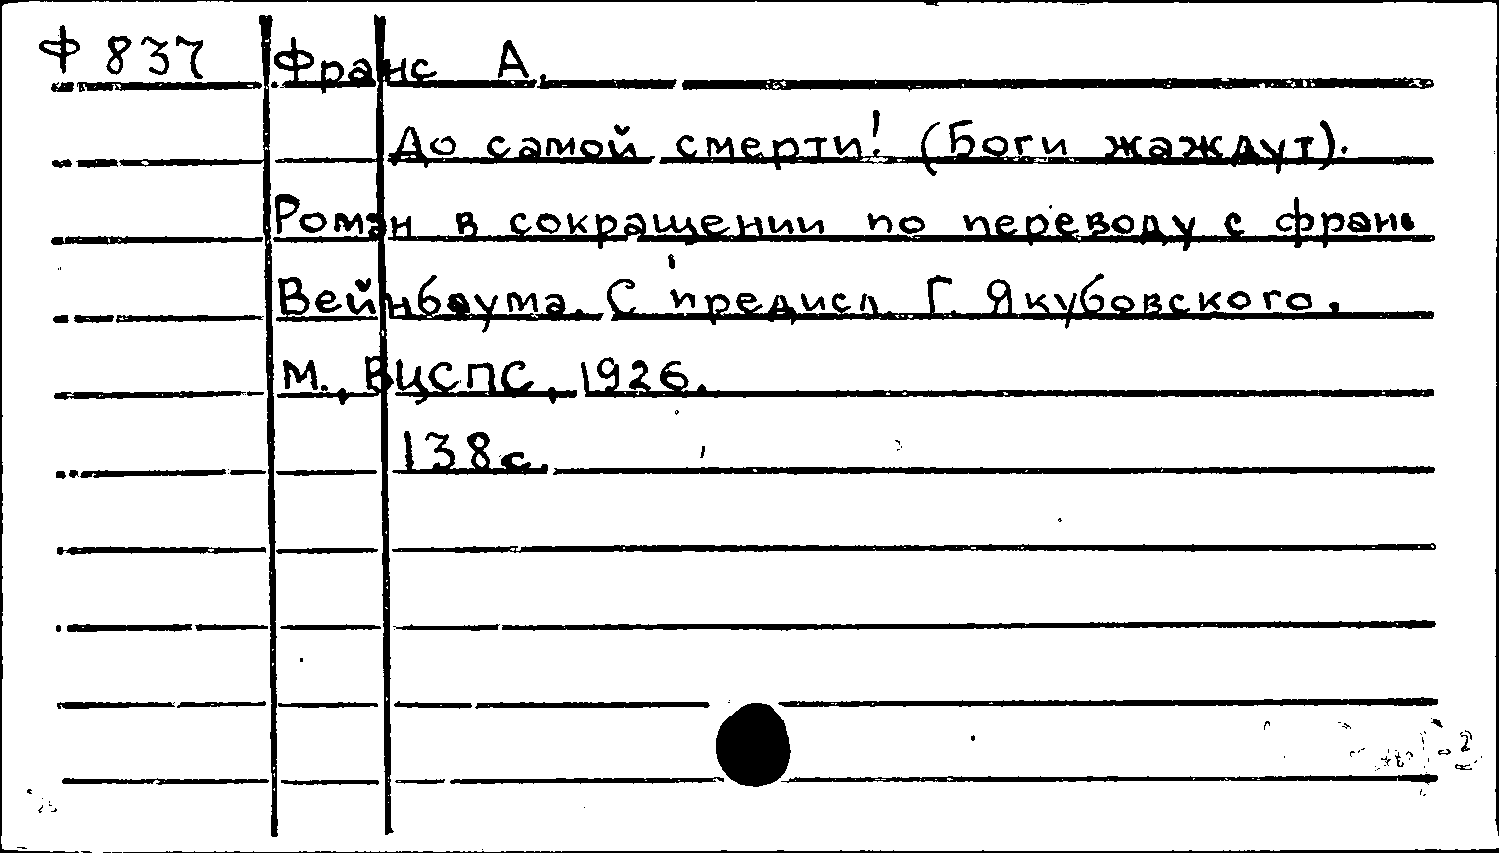 Ф 837 Франс А.
До самой смерти! (Боги жаждут).
Роман в сокращении по переводу с франц.
Вейнбаума. С предисл. Г. Якубовского.
М., ВЦСПС, 1926.
138 с.